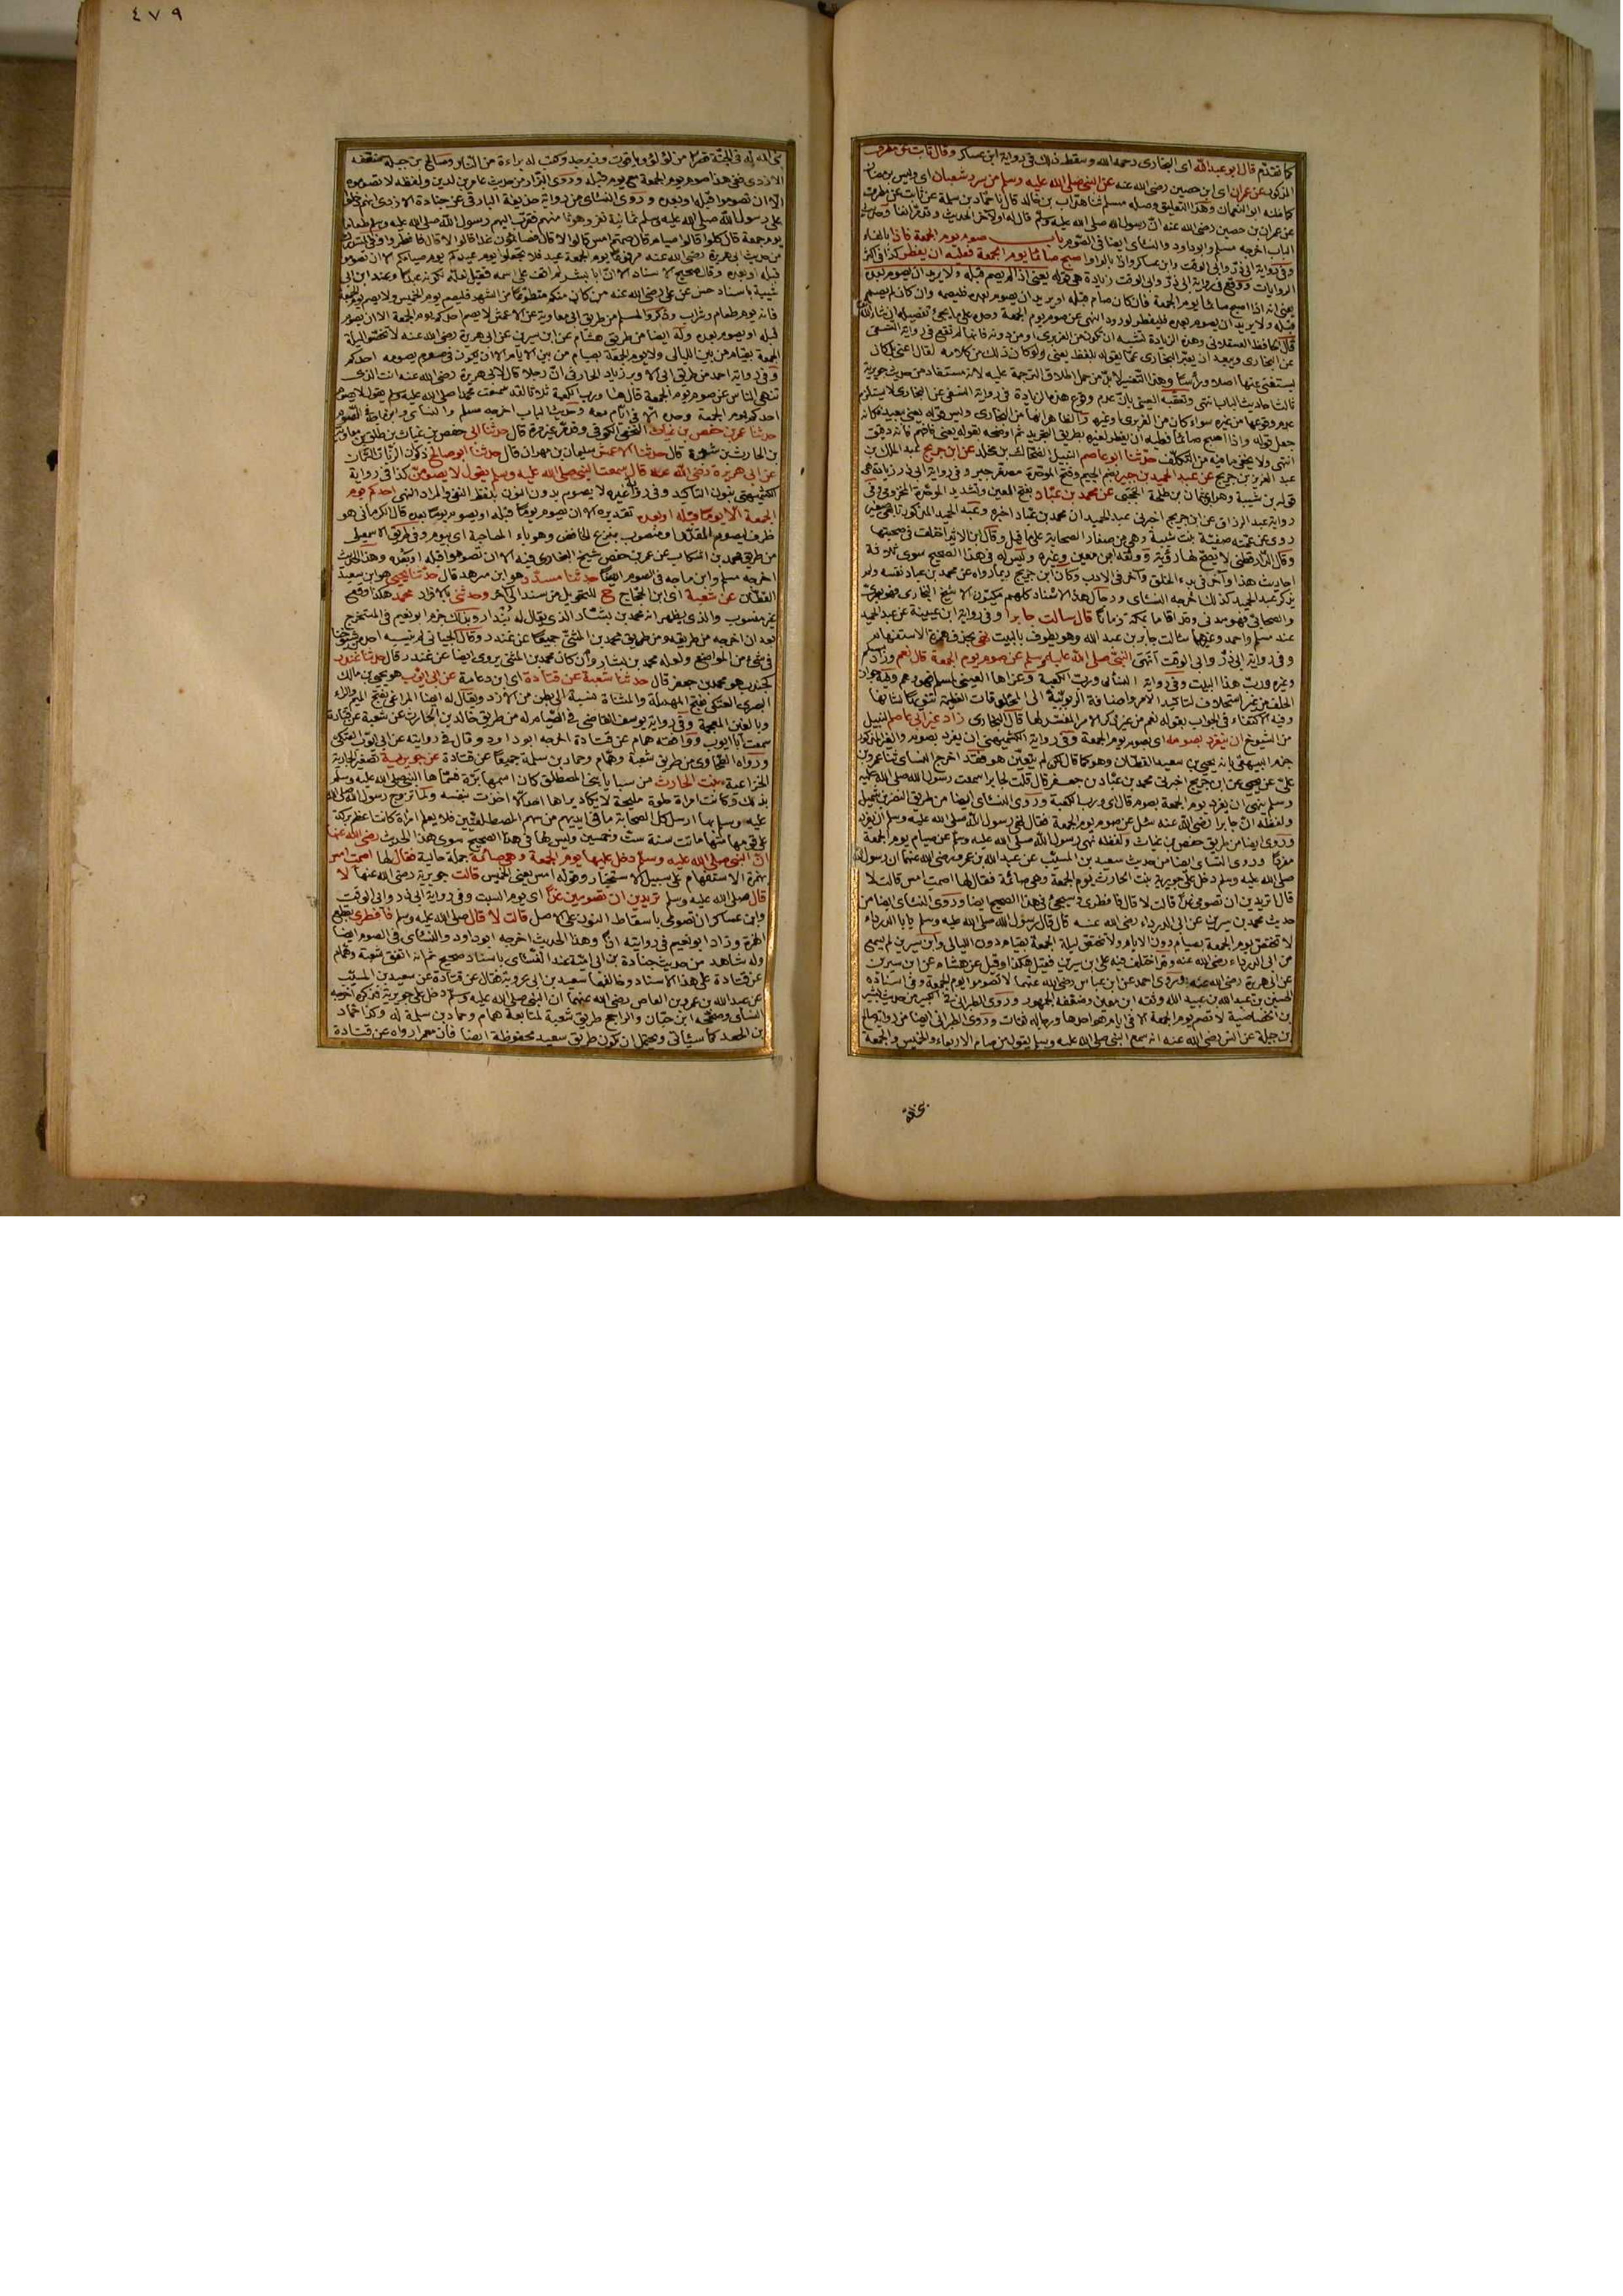 كما تقدّم قال ابو عبد الله اى البخارى رحمه الله وسقط ذلك فى رواية ابن عساكر وقال ثابت عن مطرف
المذكور عن عمران اى ابن حصين رضى الله عنه عن النبى صلى الله عليه وسلم من سرر شعبان اى وليس برمضان
كما ظنه ابو النعمان وهذا التعليق وصله مسلم ثنا هدّاب بن خالد قال نا حماد بن سلمة عن ثابت عن مطرف
عن عمران بن حصين رضى الله عنه انّ رسول الله صلى الله عليه وسلم قال له او لآخر الحديث
الباب اخرجه مسلم وابو داود والنسائى ايضا فى الصوم باب صوم يوم الجمعة فاذا بالفاء
وفى رواية ابى ذرّ وابى الوقت وابن عساكر واذا بالواو اصبح صائما يوم الجمعة فعليه ان يفطر كذا فى اكثر
الروايات ووقع فى رواية ابى ذرّ وابى الوقت زيادة هى قوله يعنى اذا لم يصم قبله ولا يريد ان يصوم بعده
يعنى انه اذا اصبح صائما يوم الجمعة فان كان صام قبله او يريد ان يصوم بعده فليصمه وان كان لم يصم
قبله ولا يريد ان يصوم بعده فليفطر لورود النهى عن صوم يوم الجمعة وحده على ما يجئ تفصيله ان شاء الله
قال الحافظ العسقلانى وهذه الزيادة تشبه ان تكون من الفربرى او من دونه فانها لم تقع فى رواية النسفى
عن البخارى ويبعد ان يعبّر البخارى عمّا يقوله بلفظ يعنى ولو كان ذلك من كلامه لقال اعنى بل كان
يستغنى عنها اصلا ورأسا وهذا التفسير لا بدّ من حمل اطلاق الترجمة عليه لانه مستفاد من حديث جويرية
ثالث احاديث الباب انتهى وتعقبه العينى بانّ عدم وقوع هذه الزيادة فى رواية النسفى عن البخارى لا يستلزم
عدم وقوعها من غيره سواء كان من الفربرى او غيره
جعل قوله واذا اصبح صائما فعليه ان يفطر لغيره بطريق التجريد ثم اوضحه بقوله يعنى فافهم فانه دقيق
انتهى ولا يخفى ما فيه من التكلّف حدّثنا ابو عاصم النبيل الضحاك بن مخلد عن ابن جريج عبد الملك بن
عبد العزيز بن جريج عن عبد الحميد بن جبير بضم الجيم وفتح الموحّدة مصغّر جبر وفى رواية ابى ذر زيادة هى
قوله ابن شيبة وهو ابن عثمان بن طلحة الحجبى عن محمد بن عبّاد بفتح العين وتشديد الموحّدة المخزومى وفى
رواية عبد الرزاق عن ابن جريج اخبرنى عبد الحميد ان محمد بن عبّاد اخبره وعبد الحميد المذكور تابعى صغير
روى عن عمّته صفيّة بنت شيبة وهى من صغار الصحابة على ما قيل وقال ابن الاثير اختلف فى صحبتها
وقال الدّارقطنى لا يصحّ لها رؤية ووثّقه ابن معين وغيره وليس له فى هذا الصحيح سوى ثلاثة
احاديث هذا وآخر فى بدء الخلق وآخر فى الادب وكان ابن جريج ربما رواه عن محمد بن عباد نفسه ولم
يذكر عبد الحميد كذلك اخرجه النسائى ورجال هذا الاسناد كلهم مكيّون الا شيخ البخارى فهو بصرى
والصحابى فهو مدنى وقد اقاما بمكّة زمانا قال سالت جابرا وفى رواية ابن عيينة عن عبد الحميد
عند مسلم واحمد وغيرهما سألت جابر بن عبد الله وهو يطوف بالبيت نهى بحذف همزة الاستفهام
وفى رواية ابى ذرّ وابى الوقت أنهى النبىّ صلى الله عليه وسلم عن صوم يوم الجمعة قال نعم وزاد مسلم
وغيره وربّ هذا البيت وفى رواية النسائى وربّ الكعبة وعزاها العينى لمسلم فهو وهم وفيه جواز
الحلف من غير استحلاف لتاكيد الامر واضافة الربوبيّة الى المخلوقات العظيمة تنويها لشأنها
وفيه الاكتفاء فى الجواب بقوله نعم من غير ذكر الامر المفسّر لها قال البخارى زاد غير ابى عاصم النبيل
من الشيوخ ان ينفرد بصومه اى بصوم يوم الجمعة وفى رواية الكشميهنى ان يفرد بصوم والغير المذكور
جزم البيهقى بانه يحيى بن سعيد القطّان وهو كما قال لكن لم يتعيّن هو فقد اخرج النسائى ثنا عمرو بن
علىّ عن يحيى عن ابن جريج اخبرنى محمد بن عبّاد بن جعفر قال قلت لجابر اسمعت رسول الله صلى الله عليه
وسلم ينهى ان يفرد يوم الجمعة بصوم قال اى وربّ الكعبة وروى النسائى ايضا من طريق النضر بن شميل
ولفظه انّ جابرا رضى الله عنه سئل عن صوم يوم الجمعة فقال نهى رسول الله صلى الله عليه وسلم ان يفرد
وروى ايضا من طريق حفص بن غياث ولفظه نهى رسول الله صلى الله عليه وسلم عن صيام يوم الجمعة
مفردا وروى النسائى ايضا من حديث سعيد بن المسيّب عن عبد الله بن عمرو رضى الله عنهما ان رسول الله
صلى الله عليه وسلم دخل على جويرية بنت الحارث يوم الجمعة وهى صائمة فقال لها اصمت امس قالت لا
قال تريدين ان تصومى غدا قالت لا قال فافطرى وسيجئ فى هذا الصحيح ايضا وروى النسائى ايضا من
حديث محمد بن سيرين عن ابى الدرداء رضى الله عنه قال قال رسول الله صلى الله عليه وسلم يا ابا الدرداء
لا تختصّ يوم الجمعة بصيام دون الايام ولا تختصّ ليلة الجمعة بقيام دون الليالى وابن سيرين لم يسمع
من ابى الدرداء رضى الله عنه وقد اختلف فيه على ابن سيرين فقيل هكذا وقيل عن هشام عن ابن سيرين
عن ابى هريرة رضى الله عنه وروى احمد عن ابن عباس رضى الله عنهما لا تصوموا يوم الجمعة وفى اسناده
الحسين بن عبد الله بن عبيد الله وثقه ابن معين وضعّفه الجمهور وروى الطبرانى فى الكبير من حديث بشير
بن الخصاصية لا تصم يوم الجمعة الا فى ايام هو احدها ورجاله ثقات وروى الطبرانى ايضا من رواية صالح
بن جبلة عن انس رضى الله عنه انه سمع النبى صلى الله عليه وسلم يقول من صام الاربعاء والخميس والجمعة
٤٧٩
بنى الله له فى الجنّة قصرا من لؤلؤ وياقوت وزبرجد وكتب له براءة من النار وصالح بن جبلة ضعّفه
الازدى ففى هذا صوم يوم الجمعة مع يوم قبله وروى البزّار من حديث عامر بن لدين ولفظه لا تصوموه
الّا ان تصوموا قبله او بعده وروى النسائى من رواية حذيفة البارقى عن جنادة الازدى انهم دخلوا
على رسول الله صلى الله عليه وسلم ثمانية نفر وهو ثامنهم فقرّب اليهم رسول الله صلى الله عليه وسلم طعاما
يوم جمعة قال كلوا قالوا صيام قال صمتم امس قالوا لا قال فصائمون غدا قالوا لا قال فافطروا
من حديث ابى هريرة رضى الله عنه مرفوعا يوم الجمعة عيد فلا تجعلوا يوم عيدكم يوم صيامكم الا ان تصوموا
قبله او بعده وقال صحيح الاسناد الا انّ ابا بشر لم اقف على اسمه وعند ابن ابى
شيبة باسناد حسن عن علىّ رضى الله عنه من كان منكم متطوّعا من الشهر فليصم يوم الخميس ولا يصم يوم الجمعة
فانه يوم طعام وشراب وذكر ولمسلم من طريق ابى معاوية عن الاعمش لا يصم احدكم يوم الجمعة الا ان يصوم
قبله او يصوم بعده وله ايضا من طريق هشام عن ابن سيرين عن ابى هريرة رضى الله عنه لا تختصّوا ليلة
الجمعة بقيام من بين الليالى ولا يوم الجمعة بصيام من بين الايام الا ان يكون فى صوم يصومه احدكم
وفى رواية احمد من طريق ابى الاوبر زياد الحارثى انّ رجلا قال لابى هريرة رضى الله عنه انت الذى
تنهى الناس عن صوم يوم الجمعة قال ها وربّ الكعبة ثلاثا لقد سمعت محمدا صلى الله عليه وسلم يقول لا يصوم
احدكم يوم الجمعة وحده الّا فى ايّام معه وحديث الباب اخرجه مسلم والنسائى وابن ماجة فى الصوم
حدّثنا عمر بن حفص بن غياث النخعى الكوفى وقد مرّ غير مرة قال حدّثنا ابى حفص بن غياث بن طلق بن معاوية
بن الحارث قال حدثنا الاعمش سليمان بن مهران قال حدّثنا ابو صالح ذكوان الزيّات السمّان
عن ابى هريرة رضى الله عنه قال سمعت النبى صلى الله عليه وسلم يقول لا يصومنّ كذا فى رواية
الكشميهنى بنون التاكيد وفى رواية غيره لا يصوم بدون النون بلفظ النفى والمراد النهى احدكم يوم
الجمعة الا يوما قبله او بعده تقديره الا ان يصوم يوما قبله او يصوم يوما بعده قال الكرمانى هو
ظرف ليصوم المقدّر او منصوب بنزع الخافض وهو باء المصاحبة اى بيوم وفى طريق الاسمعيلى
من طريق محمد بن اشكاب عن عمر بن حفص شيخ البخارى فيه الا ان تصوموا قبله او بعده وهذا الحديث
اخرجه مسلم وابن ماجه فى الصوم ايضا حدثنا مسدّد هو ابن مسرهد قال حدّثنا يحيى هو ابن سعيد
القطّان عن شعبة اى ابن الحجّاج ح للتحويل من سند الى آخر وحدثنى بالافراد محمد هكذا وقع
غير منسوب والذى يظهر انه محمد بن بشّار الذى يقال له بُندار وبذلك جزم ابو نعيم فى المستخرج
بعد ان اخرجه من طريقه ومن طريق محمد بن المثنّى جميعا عن غندر وقال الجيانى لم ينسبه احد من شيوخنا
فى شئ من المواضع ولعله محمد بن بشار وان كان محمد بن المثنى يروى ايضا عن غندر قال حدثنا غندر
كجندب هو محمد بن جعفر قال حدثنا شعبة عن قتادة اى ابن دعامة عن ابى ايوب هو يحيى بن مالك
البصرى العتكى بفتح المهملة والمثناة نسبة الى بطن من الازد ويقال له ايضا المراغى بفتح الميم والراء
وبالغين المعجمة وفى رواية يوسف القاضى فى الصيام له من طريق خالد بن الحارث عن شعبة عن قتادة
سمعت أبا ايوب ووافقه همام عن قتادة اخرجه ابو داود وقال فى روايته عن ابى ايوب العتكى
ورواه الطحاوى من طريق شعبة وهمّام وحماد بن سلمة جميعا عن قتادة عن جويرية تصغير الجارية
الخزاعية بنت الحارث من سبايا بنى المصطلق كان اسمها برّة فسمّاها النبى صلى الله عليه وسلم
بذلك وكانت امراة حلوة مليحة لا يكاد يراها احد الا اخذت بنفسه ولما تزوج رسول الله صلى الله
عليه وسلم بها ارسل كل الصحابة ما فى ايديهم من سهم المصطلقيّين فلا يعلم امرأة كانت اعظم بركة
على قومها منها ماتت سنة ستّ وخمسين وليس لها فى هذا الصحيح سوى هذا الحديث رضى الله عنها
انّ النبى صلى الله عليه وسلم دخل عليها يوم الجمعة وهى صائمة جملة حالية فقال لها اصمت امس
بهمزة الاستفهام على سبيل الاستخبار وقوله امس يعنى الخميس قالت جويرية رضى الله عنها لا
قال صلى الله عليه وسلم تريدين ان تصومين غدًا اى يوم السبت وفى رواية ابى ذر وابى الوقت
وابن عساكر ان تصومى باسقاط النون على الاصل قالت لا قال صلى الله عليه وسلم فافطرى بقطع
الهمزة وزاد ابو نعيم فى روايته اذًا وهذا الحديث اخرجه ابو داود والنسائى فى الصوم ايضا
وله شاهد من حديث جنادة بن ابى اميّة عند النسائى باسناد صحيح ثم انه اتفق شعبة وهمّام
عن قتادة على هذا الاسناد وخالفهما سعيد بن ابى عروبة فقال عن قتادة عن سعيد بن المسيّب
عن عبد الله بن عمرو بن العاص رضى الله عنهما ان النبى صلى الله عليه وسلم دخل على جويرية فذكره اخرجه
النسائى وصحّحه ابن حبّان والراجح طريق شعبة لمتابعة همام وحماد بن سلمة له وكذا حمّاد
بن الجعد كما سيأتى ويحتمل ان يكون طريق سعيد محفوظة ايضا فان معمرا رواه عن قتادة